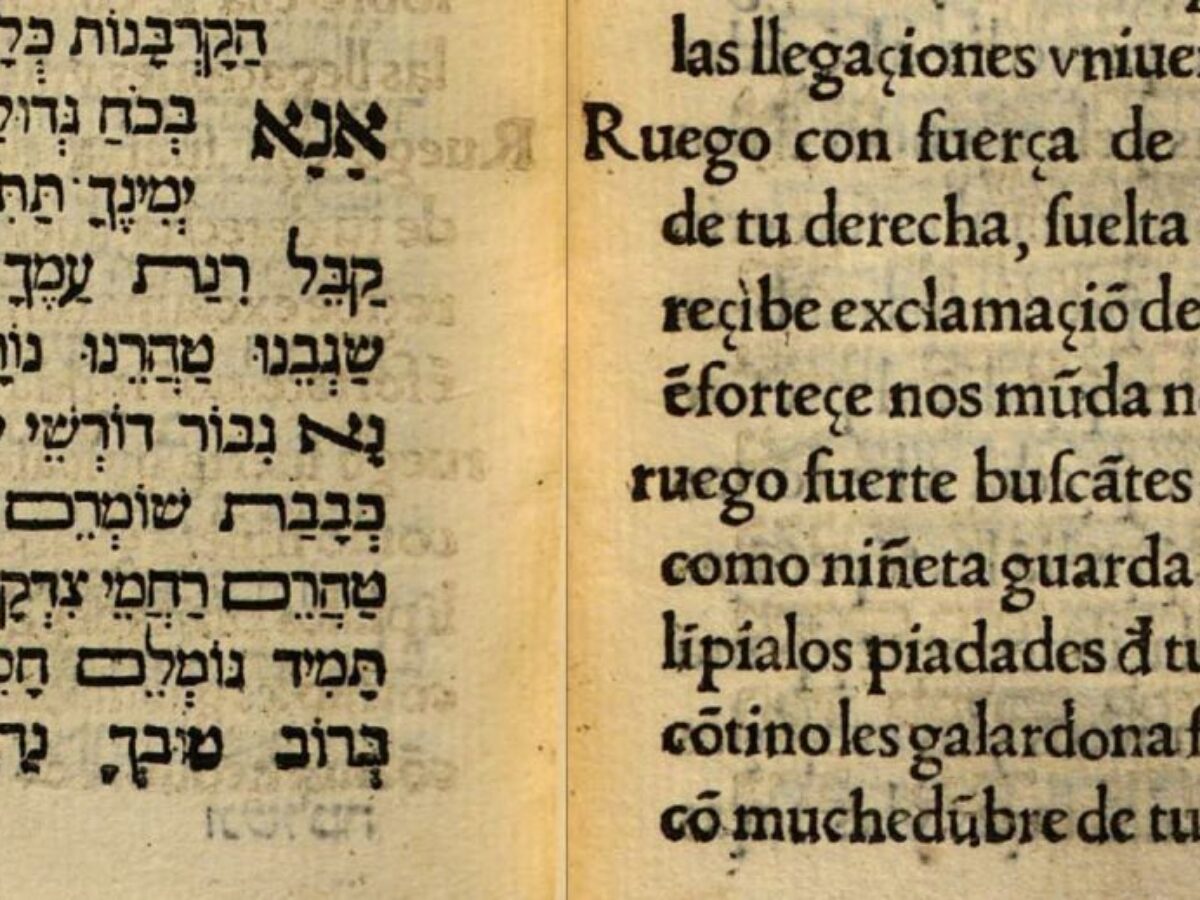 הַקָרְבָּנוֹת
אָנָא בְּכֹחַ
יְמִינֶךָ
קַבֵּל רִנַת עַמֶךָ
שַׂגְבֵנוּ טַהֲרֵנוּ
נָא גִבּוֹר דוֹרְשֵׁי
כְּבָבַת שׁוֹמְרֵם
טַהֲרֵם רַחֲמֵי
תָּמִיד גּוֹמְלֵם
בְּרוֹב טוּבְךָ
las llegaçiones
Ruego con fuerça de
de tu derecha, ſuelta
reçibe exclamaçiō de
ēforteçe nos mūda
ruego fuerte buſcātes
como niñeta guarda
līpialos piadades đ
cōtino les galardona
cō muchedūbre de